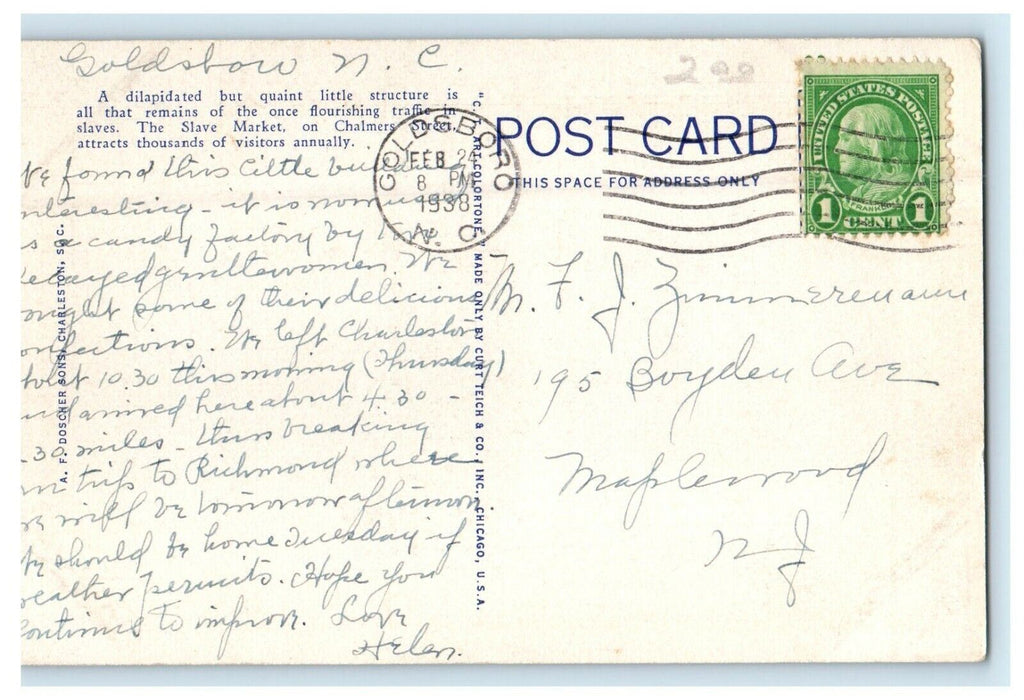 Goldsboro N. C.
A dilapidated but quaint little structure is
all that remains of the once flourishing traffic in
slaves. The Slave Market, on Chalmers Street,
attracts thousands of visitors annually.
We found this little
interesting - it is now used
as a candy factory by
decayed gentlewomen. We
bought some of their delicious
confections. We left Charleston
about 10.30 this morning (Thursday)
and arrived here about 4.30 -
30 miles - thus breaking
trip to Richmond where
we will be tomorrow afternoon.
We should be home Tuesday if
weather permits. Hope you
continue to improve. Love
Helen.
A. F. DOSCHER SONS, CHARLESTON, S. C.
"C. T. ART-COLORTONE" MADE ONLY BY CURT TEICH & CO., INC., CHICAGO, U.S.A.
GOLDSBORO
FEB 24
8 PM
1938
N. C.
200
POST CARD
THIS SPACE FOR ADDRESS ONLY
UNITED STATES POSTAGE
FRANKLIN
1 CENT 1
M. F. J. Zimmermann
195 Boyden Ave
Maplewood
N J